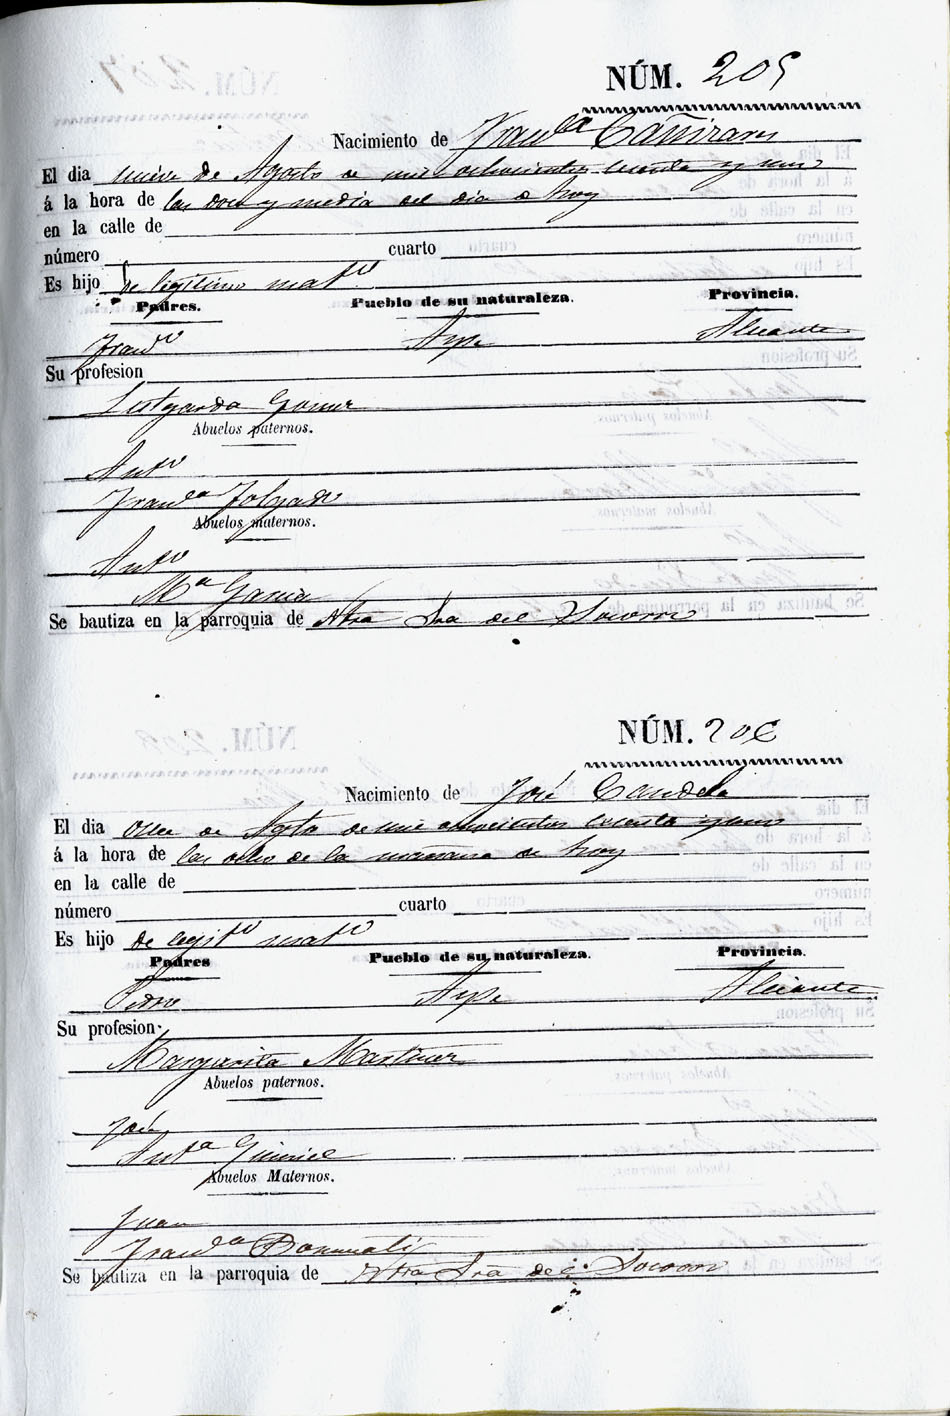 NÚM. 205
Nacimiento de Fran.ca Cañizares
El dia nueve de Agosto de mil ochocientos sesenta y uno
á la hora de las doce y media del dia de hoy
en la calle de
número cuarto
Es hijo de legítimo mat.º
Padres. Pueblo de su naturaleza. Provincia.
Fran.co Aspe Alicante
Su profesion
Lutgarda Gomez
Abuelos paternos.
Ant.º
Fran.ca
Abuelos maternos.
Ant.º
M.ª Garcia
Se bautiza en la parroquia de Ntra Sra del Socorro
NÚM. 206
Nacimiento de José Candela
El dia once de Agto de mil ochocientos sesenta y uno
á la hora de las ocho de la mañana de hoy
en la calle de
número cuarto
Es hijo de legit.º mat.º
Padres Pueblo de su naturaleza. Provincia.
Pedro Aspe Alicante
Su profesion
Margarita Martinez
Abuelos paternos.
José
Ant.ª
Abuelos Maternos.
Juan
Fran.ca
Se bautiza en la parroquia de Ntra Sra del Socorro